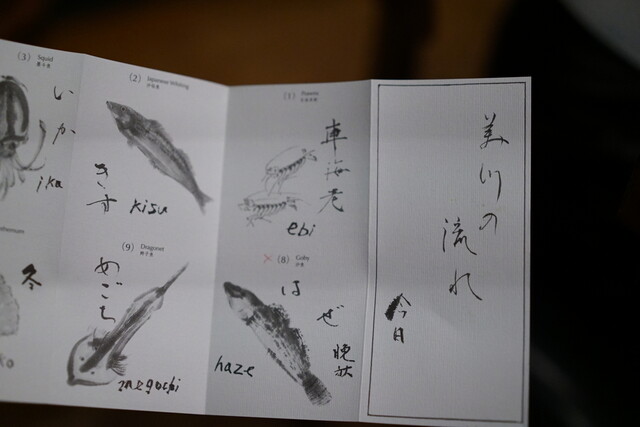 美川の
流れ
今日
(1) Prawns
車海老
ebi
× (8) Goby
はぜ
晩秋
haze
(2) Japanese Whiting
きす
kisu
(9) Dragonet
めごち
megochi
(3) Squid
いか
ika
冬